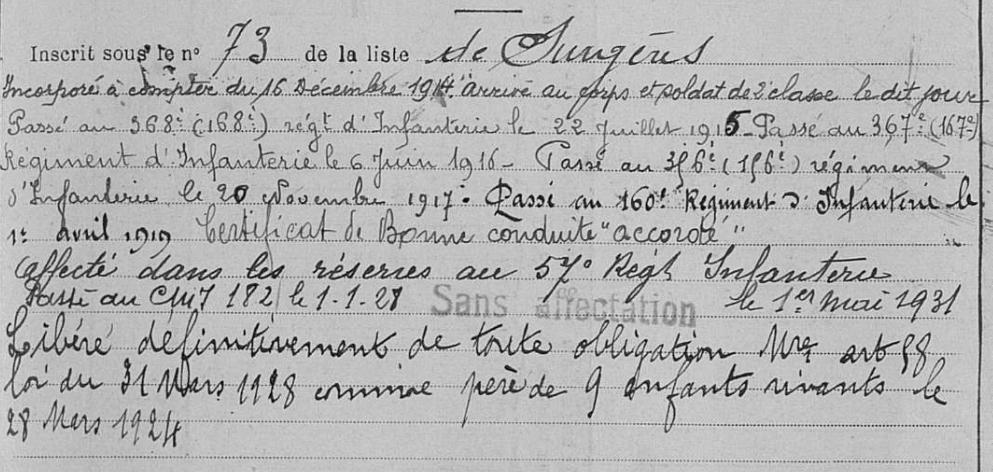 Inscrit sous le n° 73 de la liste de Surgères
Incorporé à compter du 16 Décembre 1914. arrivé au corps et soldat de 2e classe le dit jour
Passé au 368e (168e) régt d'Infanterie le 22 Juillet 1915 - Passé au 367e (167e)
Régiment d'Infanterie le 6 Juin 1916 - Passé au 356e (156e) régiment
d'Infanterie le 20 Novembre 1917. Passé au 160e Régiment d'Infanterie le
1er avril 1919 Certificat de Bonne conduite "accordé"
affecté dans les réserves au 57e Régt Infanterie
Passé au CM 182 le 1-1-27 Sans affectation le 1er mai 1931
Libéré définitivement de toute obligation Mre art 58
loi du 31 Mars 1928 comme père de 9 enfants vivants le
28 Mars 1924